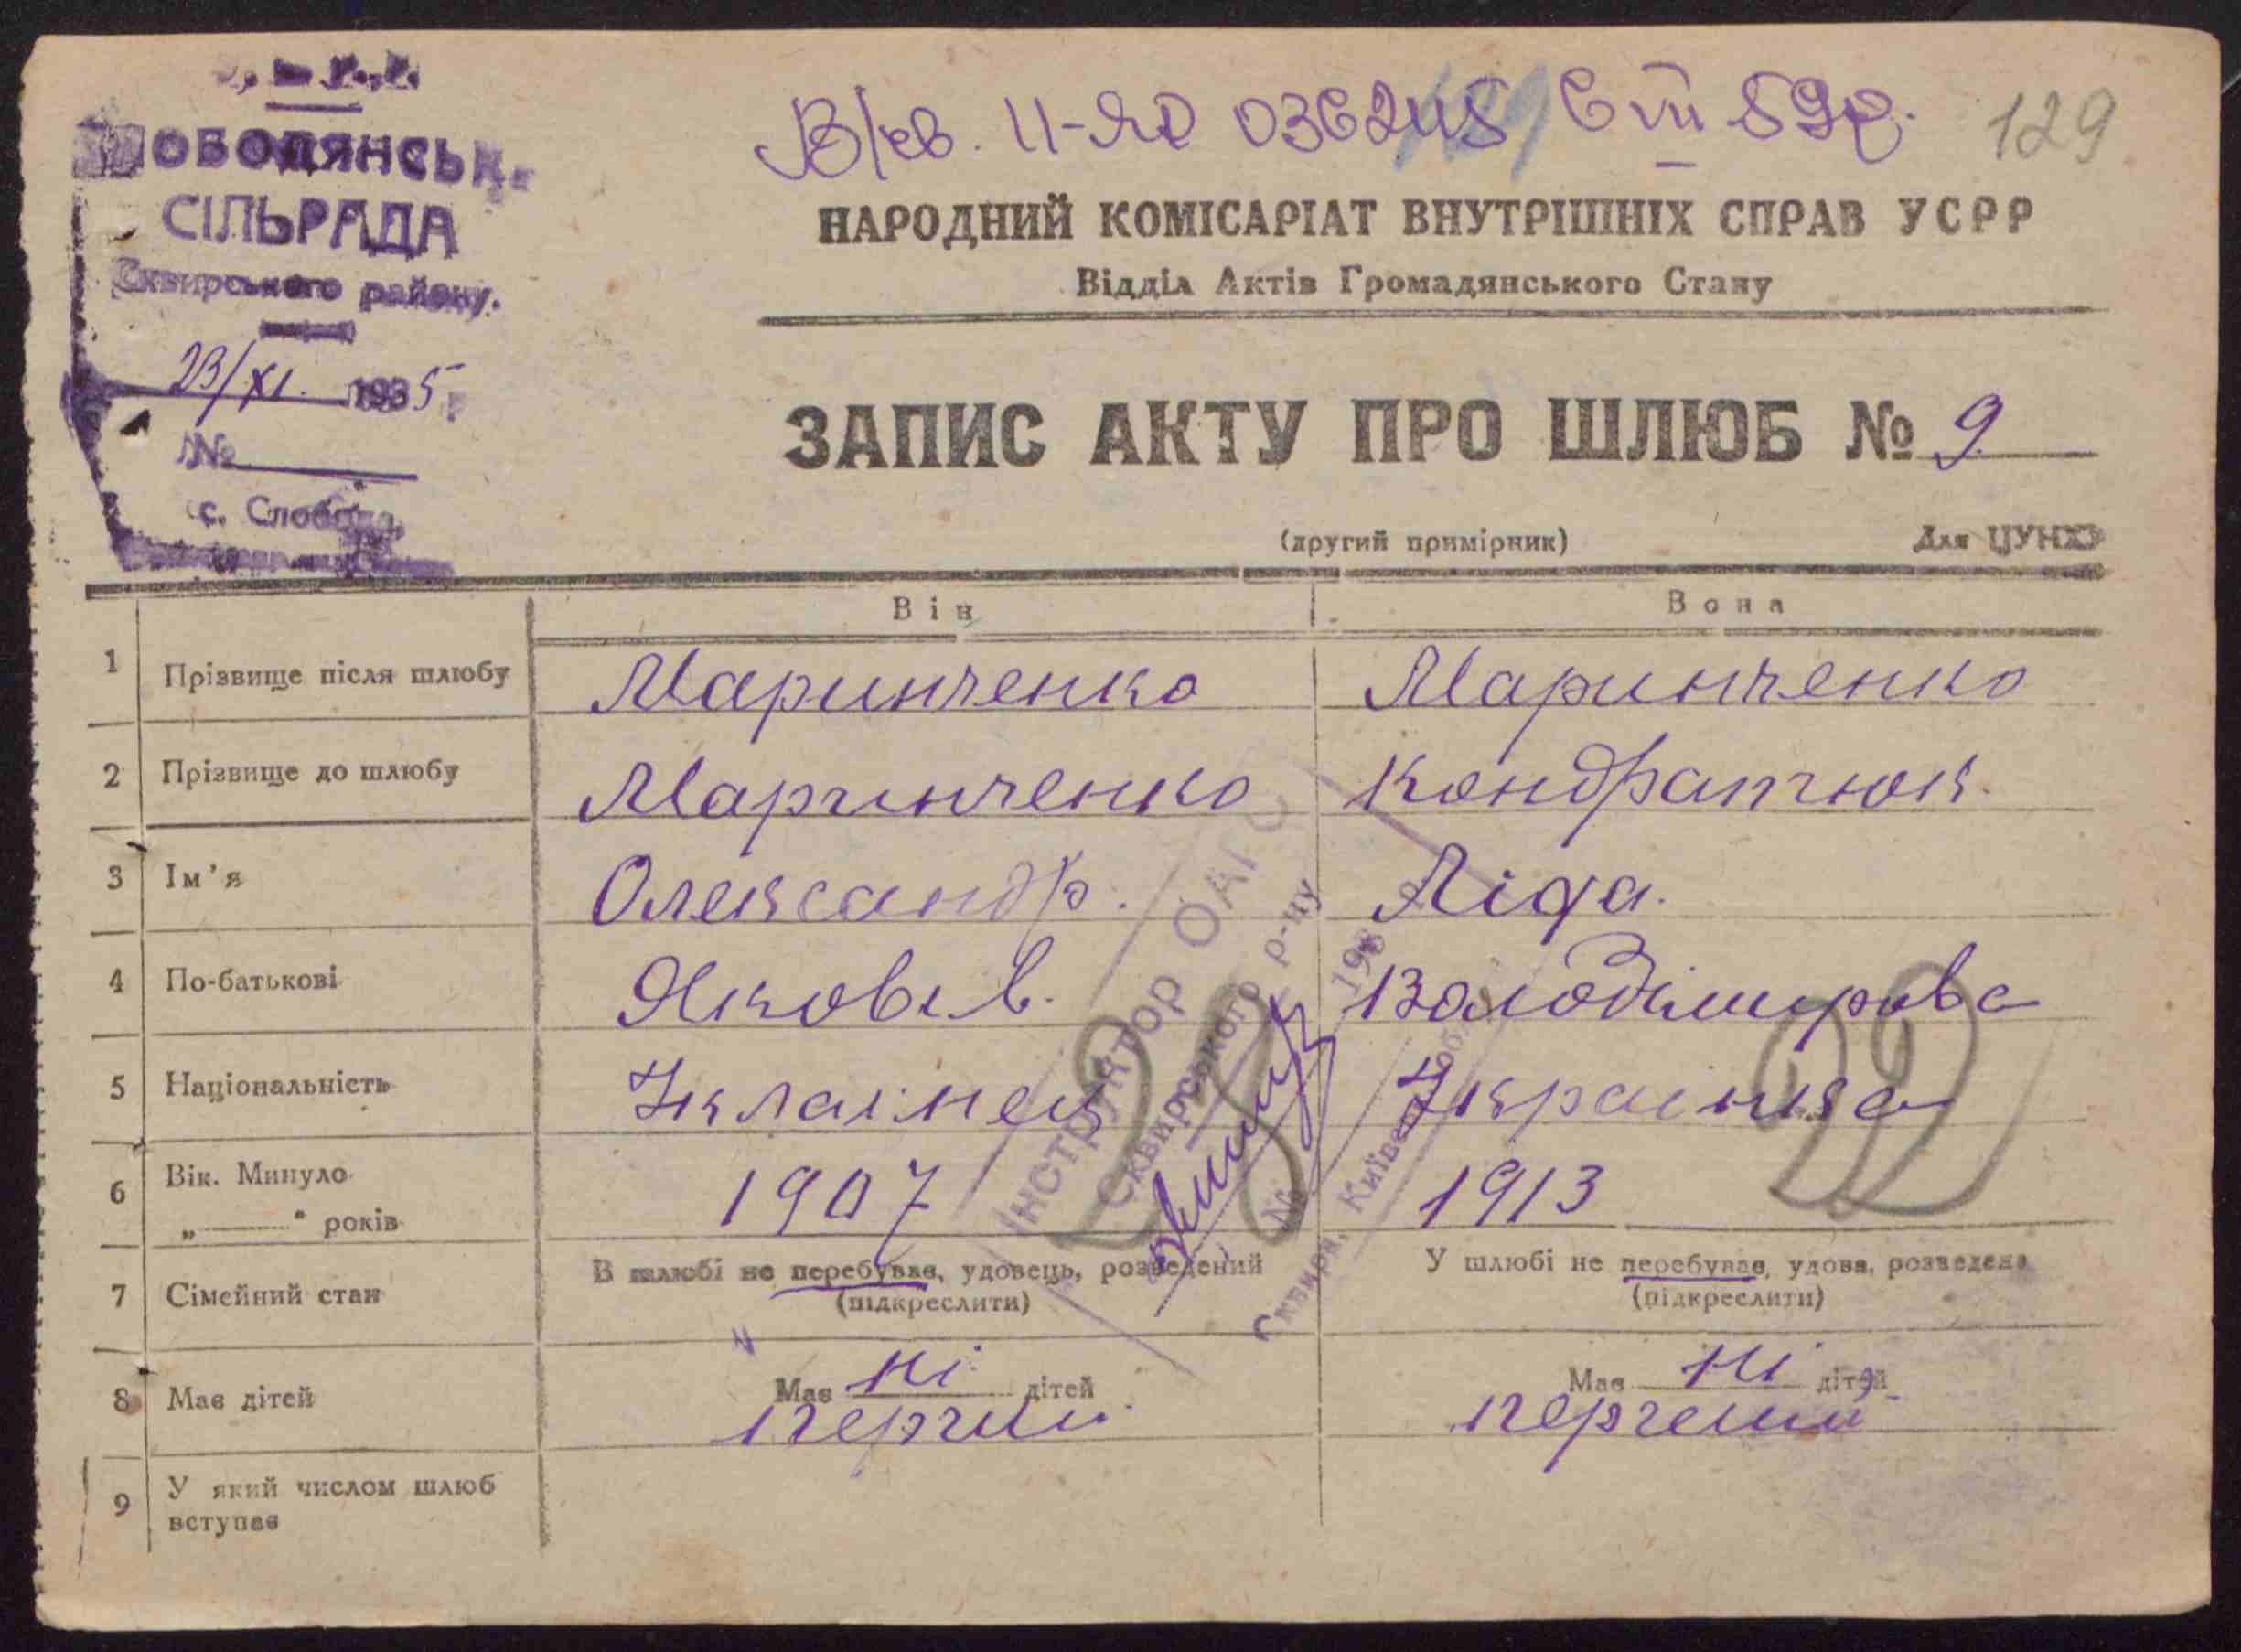 У.С.Р.Р.
СЛОБОДЯНСЬК.
СІЛЬРАДА
Сквирського району.
23/XI. 1935 р.
№
с. Слобода,
В/св. II-ЯР 036245 6 VIII 59р. 129
НАРОДНИЙ КОМІСАРІАТ ВНУТРІШНІХ СПРАВ УСРР
Відділ Актів Громадянського Стану
ЗАПИС АКТУ ПРО ШЛЮБ № 9.
(другий примірник) Для ЦУНХО
Він Вона
1 Прізвище після шлюбу Маринченко Маринченко
2 Прізвище до шлюбу Маринченко Кондратюк.
3 Ім'я Олександр. Ліда.
4 По-батькові Яковів. Володімирова
5 Національність Украінець Украінка
28 22
6 Вік. Минуло 1907 1913
„——" років
7 Сімейний стан В шлюбі не перебував, удовець, розведений У шлюбі не перебував, удова, розведена
(підкреслити) (підкреслити)
8 Має дітей Має ні дітей Має ні дітей
перчий перчеий
9 У який числом шлюб
вступає
Інструктор ОАГС
Сквирського р-ну
№ 193
Сквира, Київської обл.